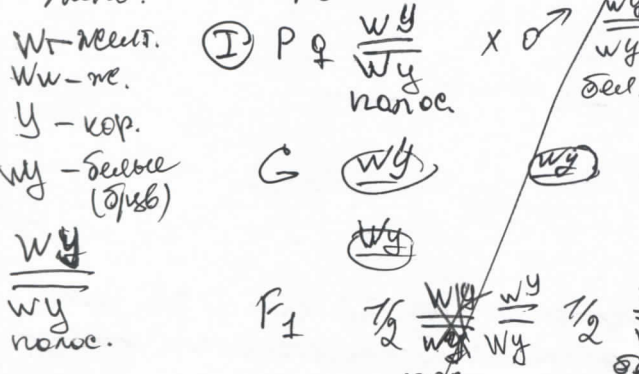 W_ - желт.
Ww - ж.
Y - кор.
wy - белые
(бцв)
WY
wy
полос.
I P ♀ WY
wy
полос.
x ♂ wy
wy
бел
G WY wy
wy
F1 1/2 WY
wy
WY
wy
1/2